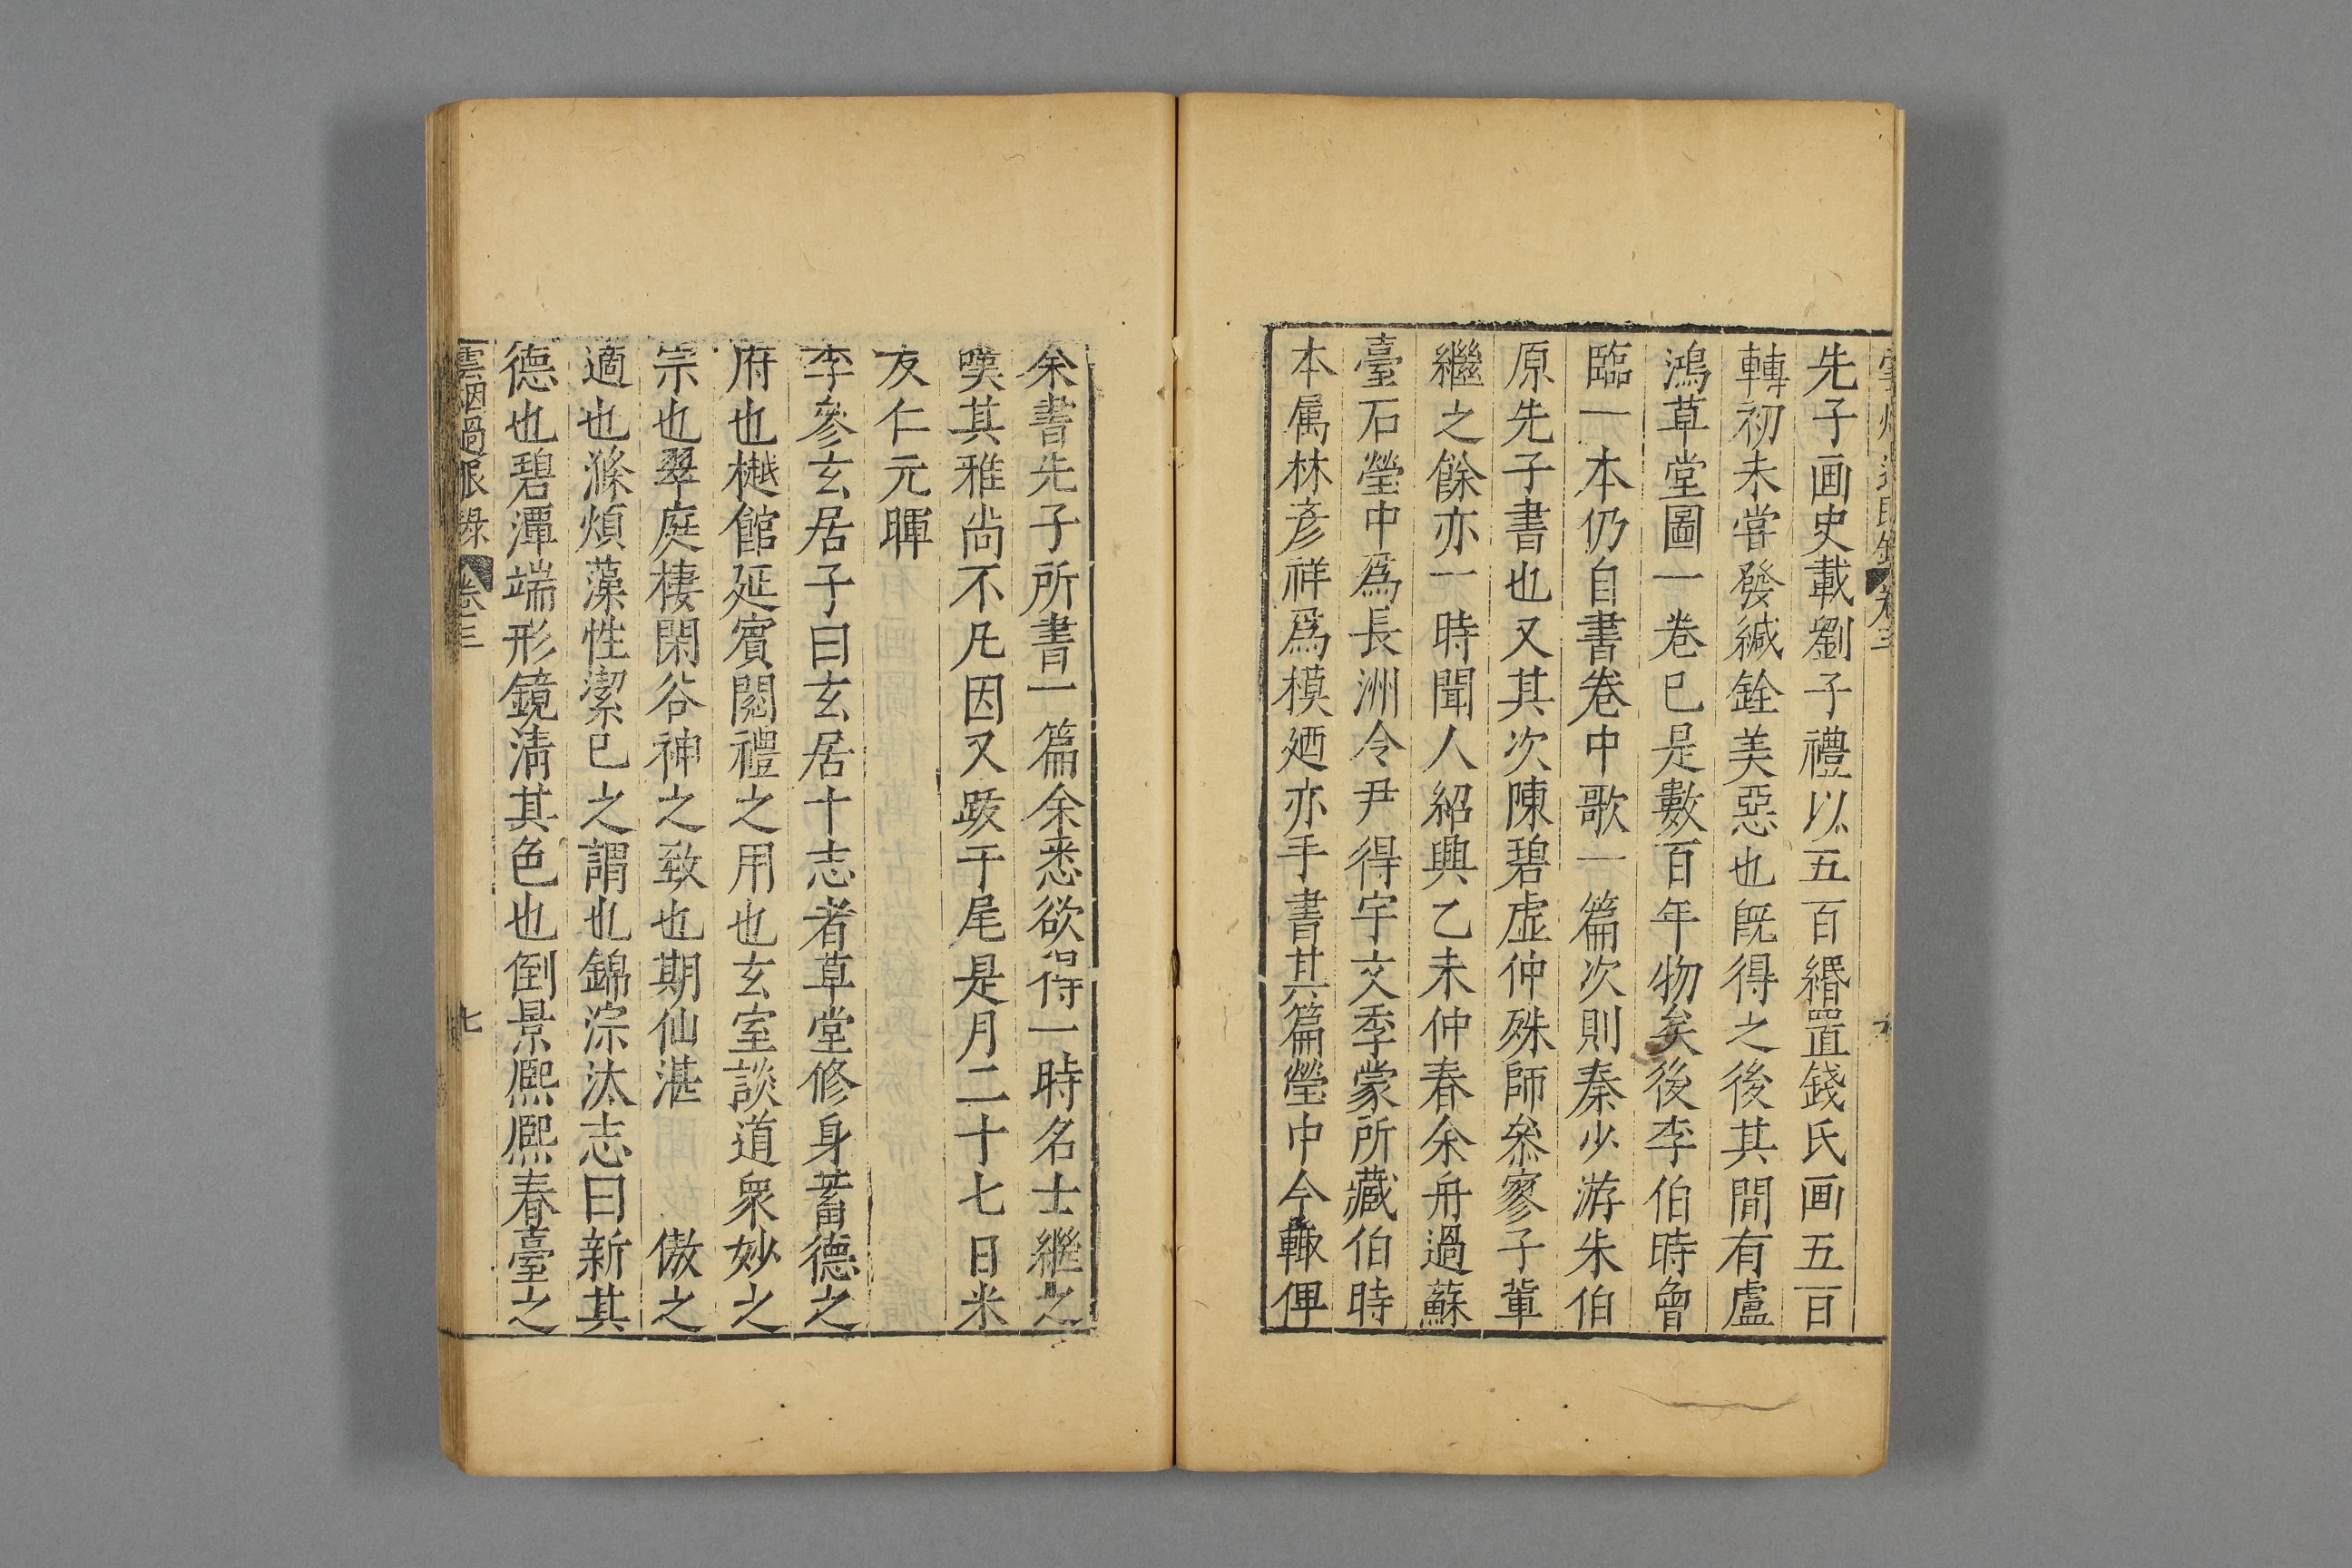 先子画史載劉子禮以五百緡置錢氏画五百
轉初未甞發緘銓美惡也既得之後其間有盧
鴻草堂圖一卷巳是數百年物矣後李伯時曾
臨一本仍自書卷中歌一篇次則秦少游朱伯
原先子書也又其次陳碧虛仲殊師叅寥子軰
繼之餘亦一時聞人紹興乙未仲春余舟過蘇
臺石瑩中爲長洲令尹得宇文季蒙所藏伯時
本属林彦祥爲模廼亦手書其篇瑩中今輙俾
余書先子所書一篇余悉欲得一時名士繼之
嘆其雅尚不凡因又跋于尾是月二十七日米
友仁元暉
李參玄居子曰玄居十志者草堂修身蓄德之
府也樾館延賓閱禮之用也玄室談道衆妙之
宗也翠庭棲閑谷神之致也期仙湛　　傲之
適也滌煩藻性潔巳之謂也錦淙汰志曰新其
德也碧潭端形鏡淸其色也倒景熈熈春臺之
雲烟過眼錄 卷三 七